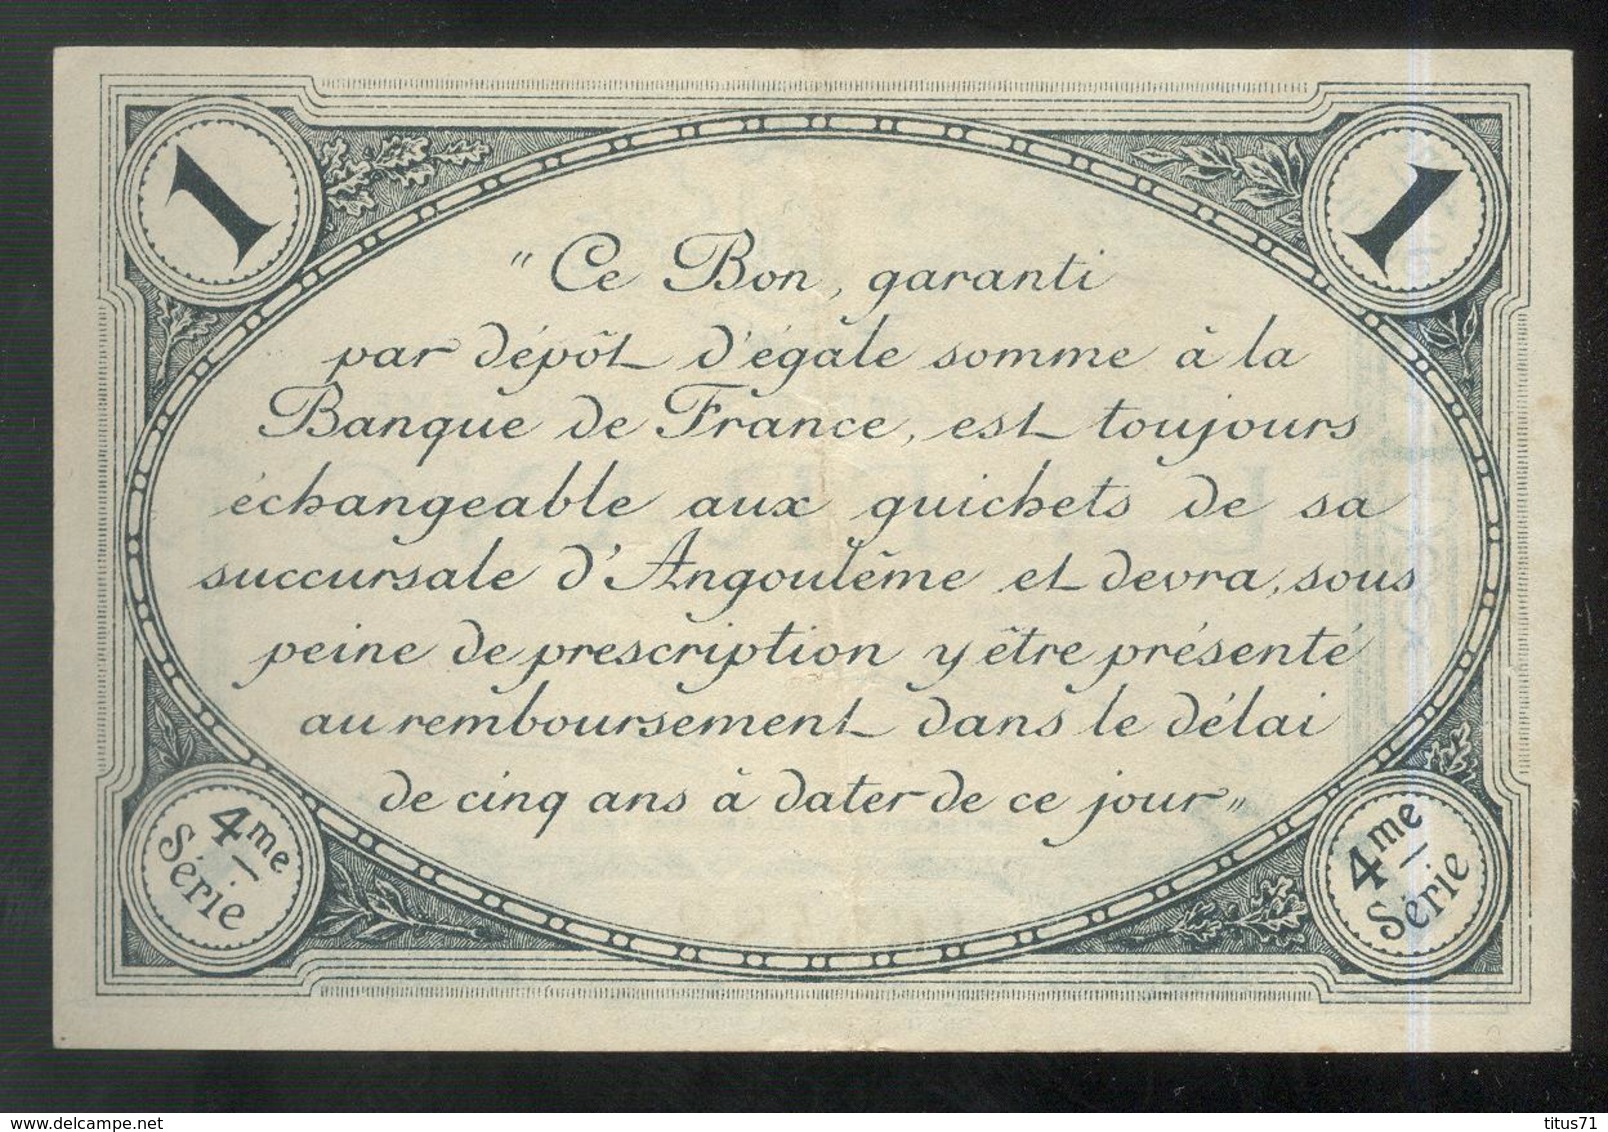 1
1
" Ce Bon, garanti
par dépôt d'égale somme à la
Banque de France, est toujours
échangeable aux guichets de sa
succursale d'Angoulême et devra, sous
peine de prescription y être présenté
au remboursement dans le délai
de cinq ans à dater de ce jour "
4me
Série
4me
Série
delcampe.net
titus71